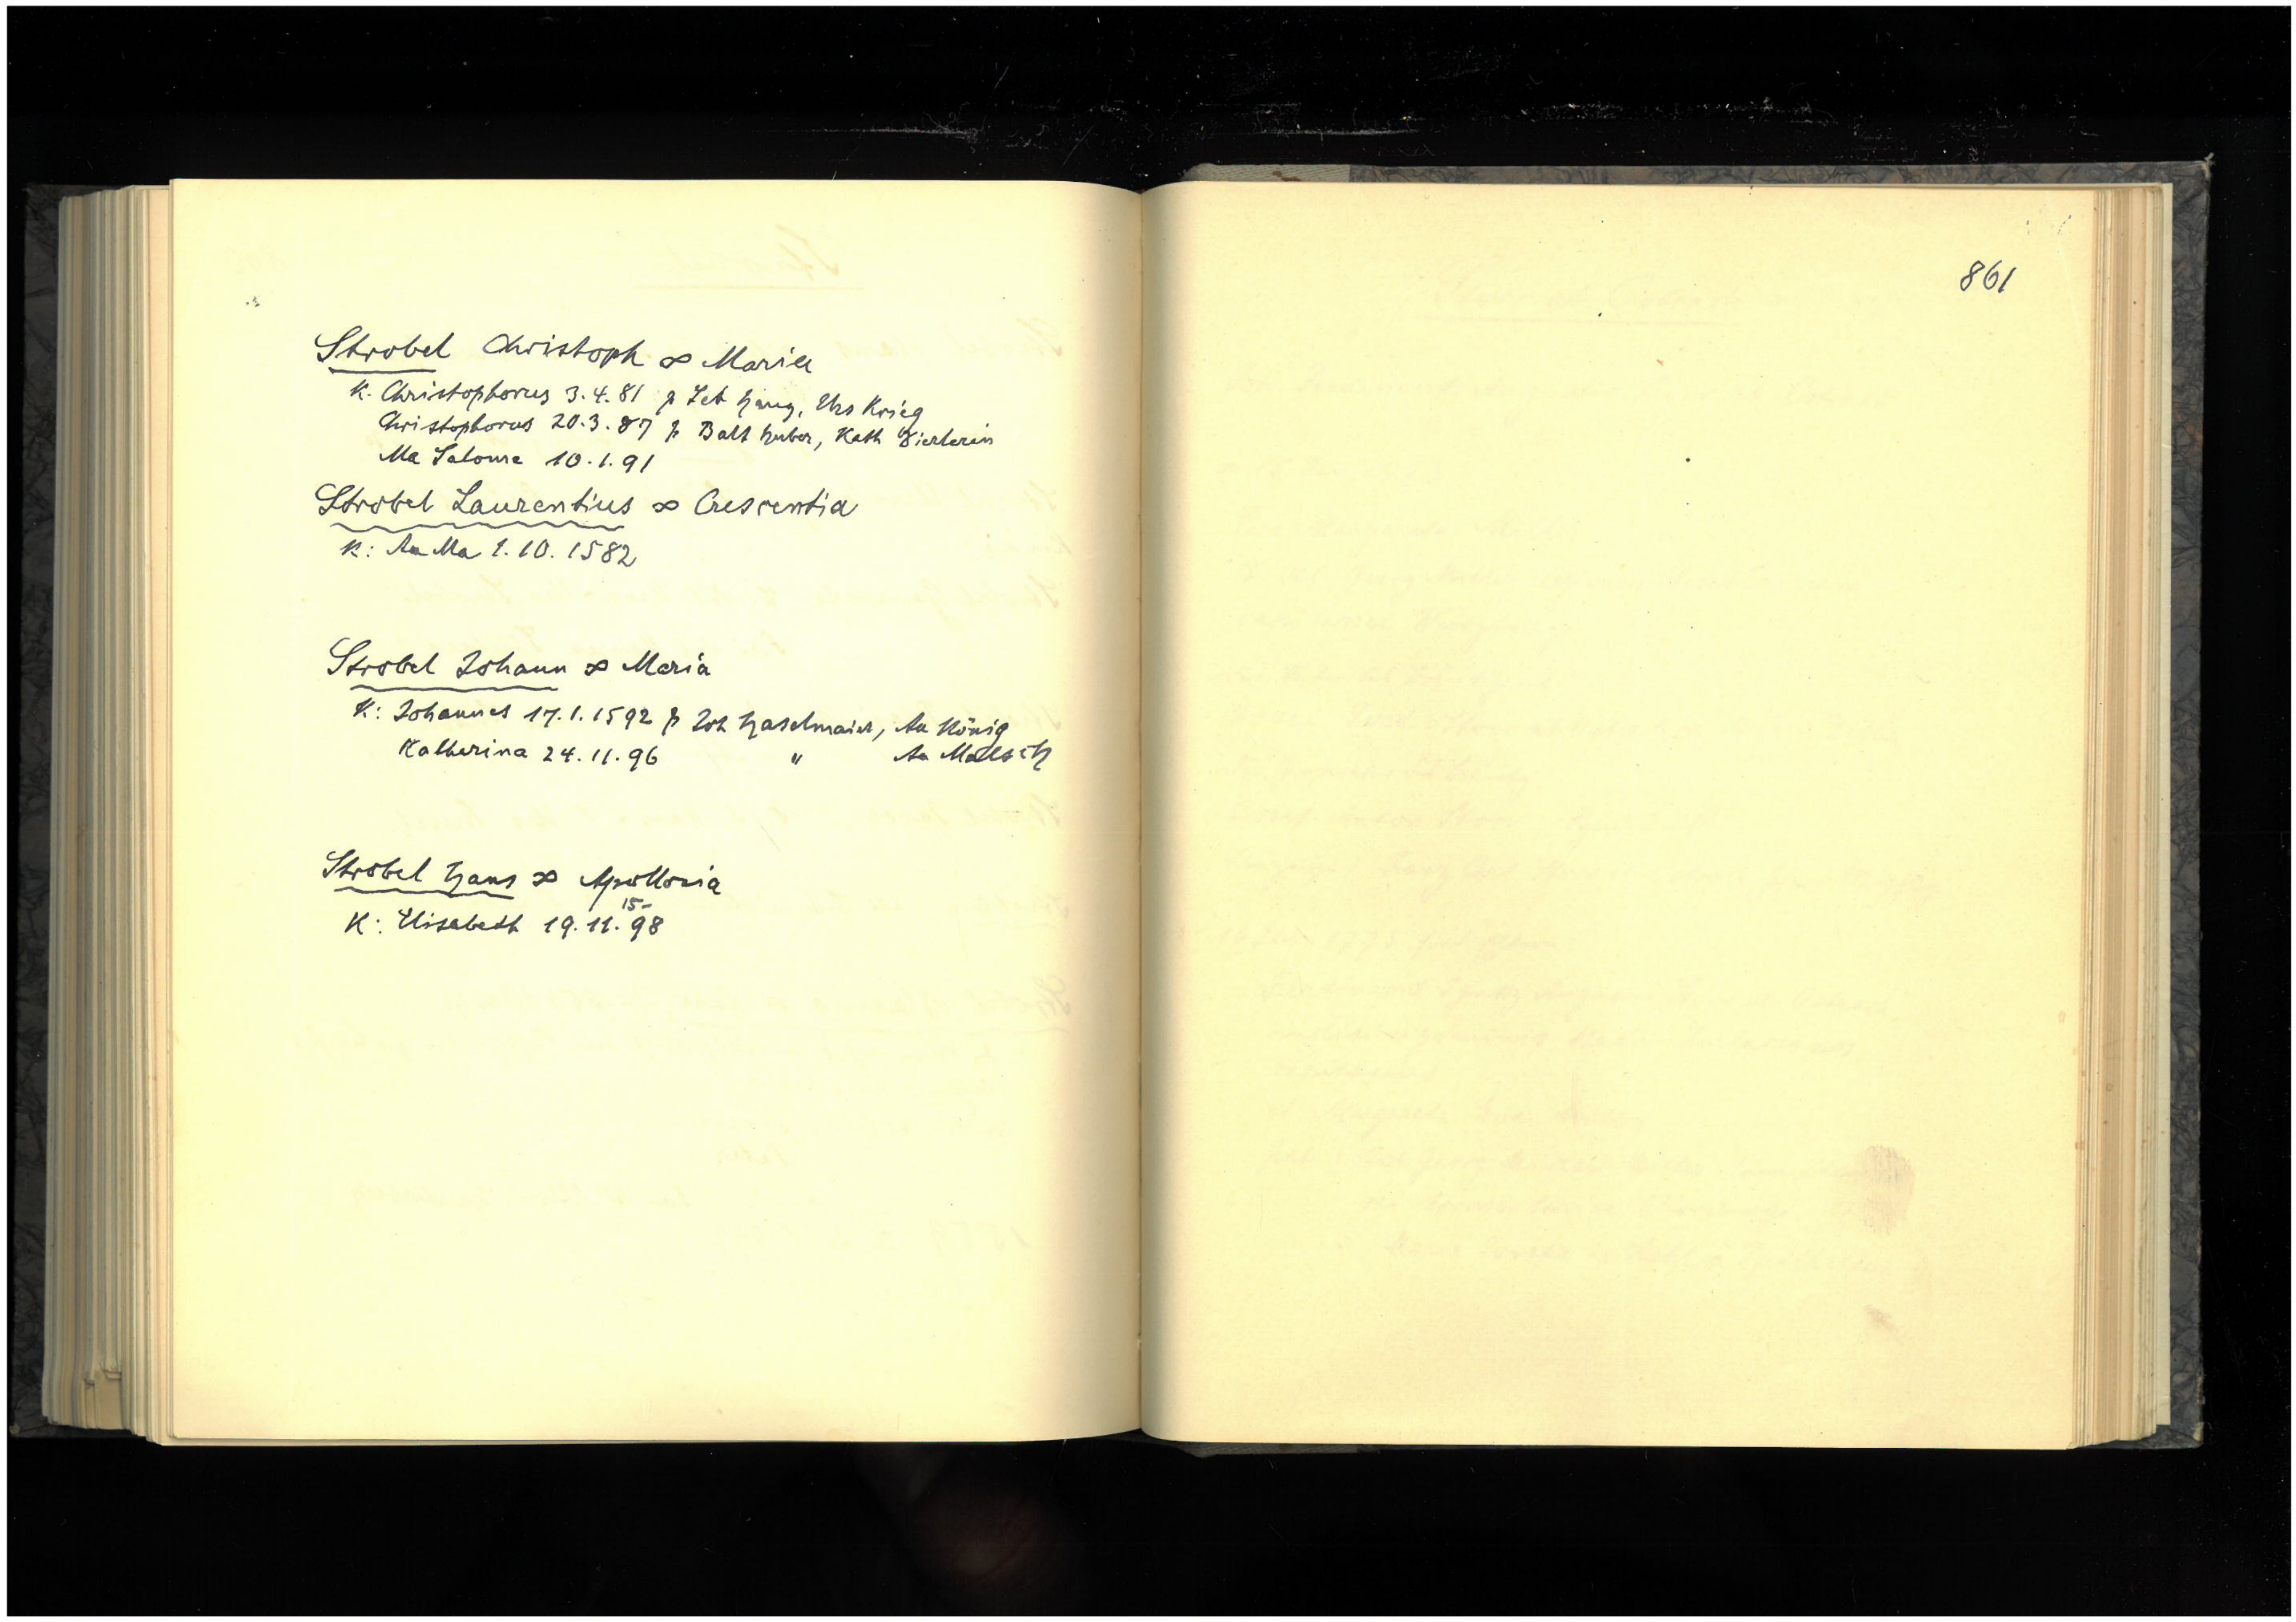 Strobel Christoph ∞ Maria
K. Christophorus 3.4.81 p Seb Haug, Urs Krieg
Christophorus 20.3.87 p Balt Huber, Kath
Ma Salome 10.1.91
Strobel Laurentius ∞ Crescentia
K: An Ma 1.10.1582
Strobel Johann ∞ Maria
K: Johannes 17.1.1592 p Joh Haselmaier, An König
Katharina 24.11.96 " An
Strobel Hans ∞ Apollonia
K: Elisabeth 19.11.1598
861